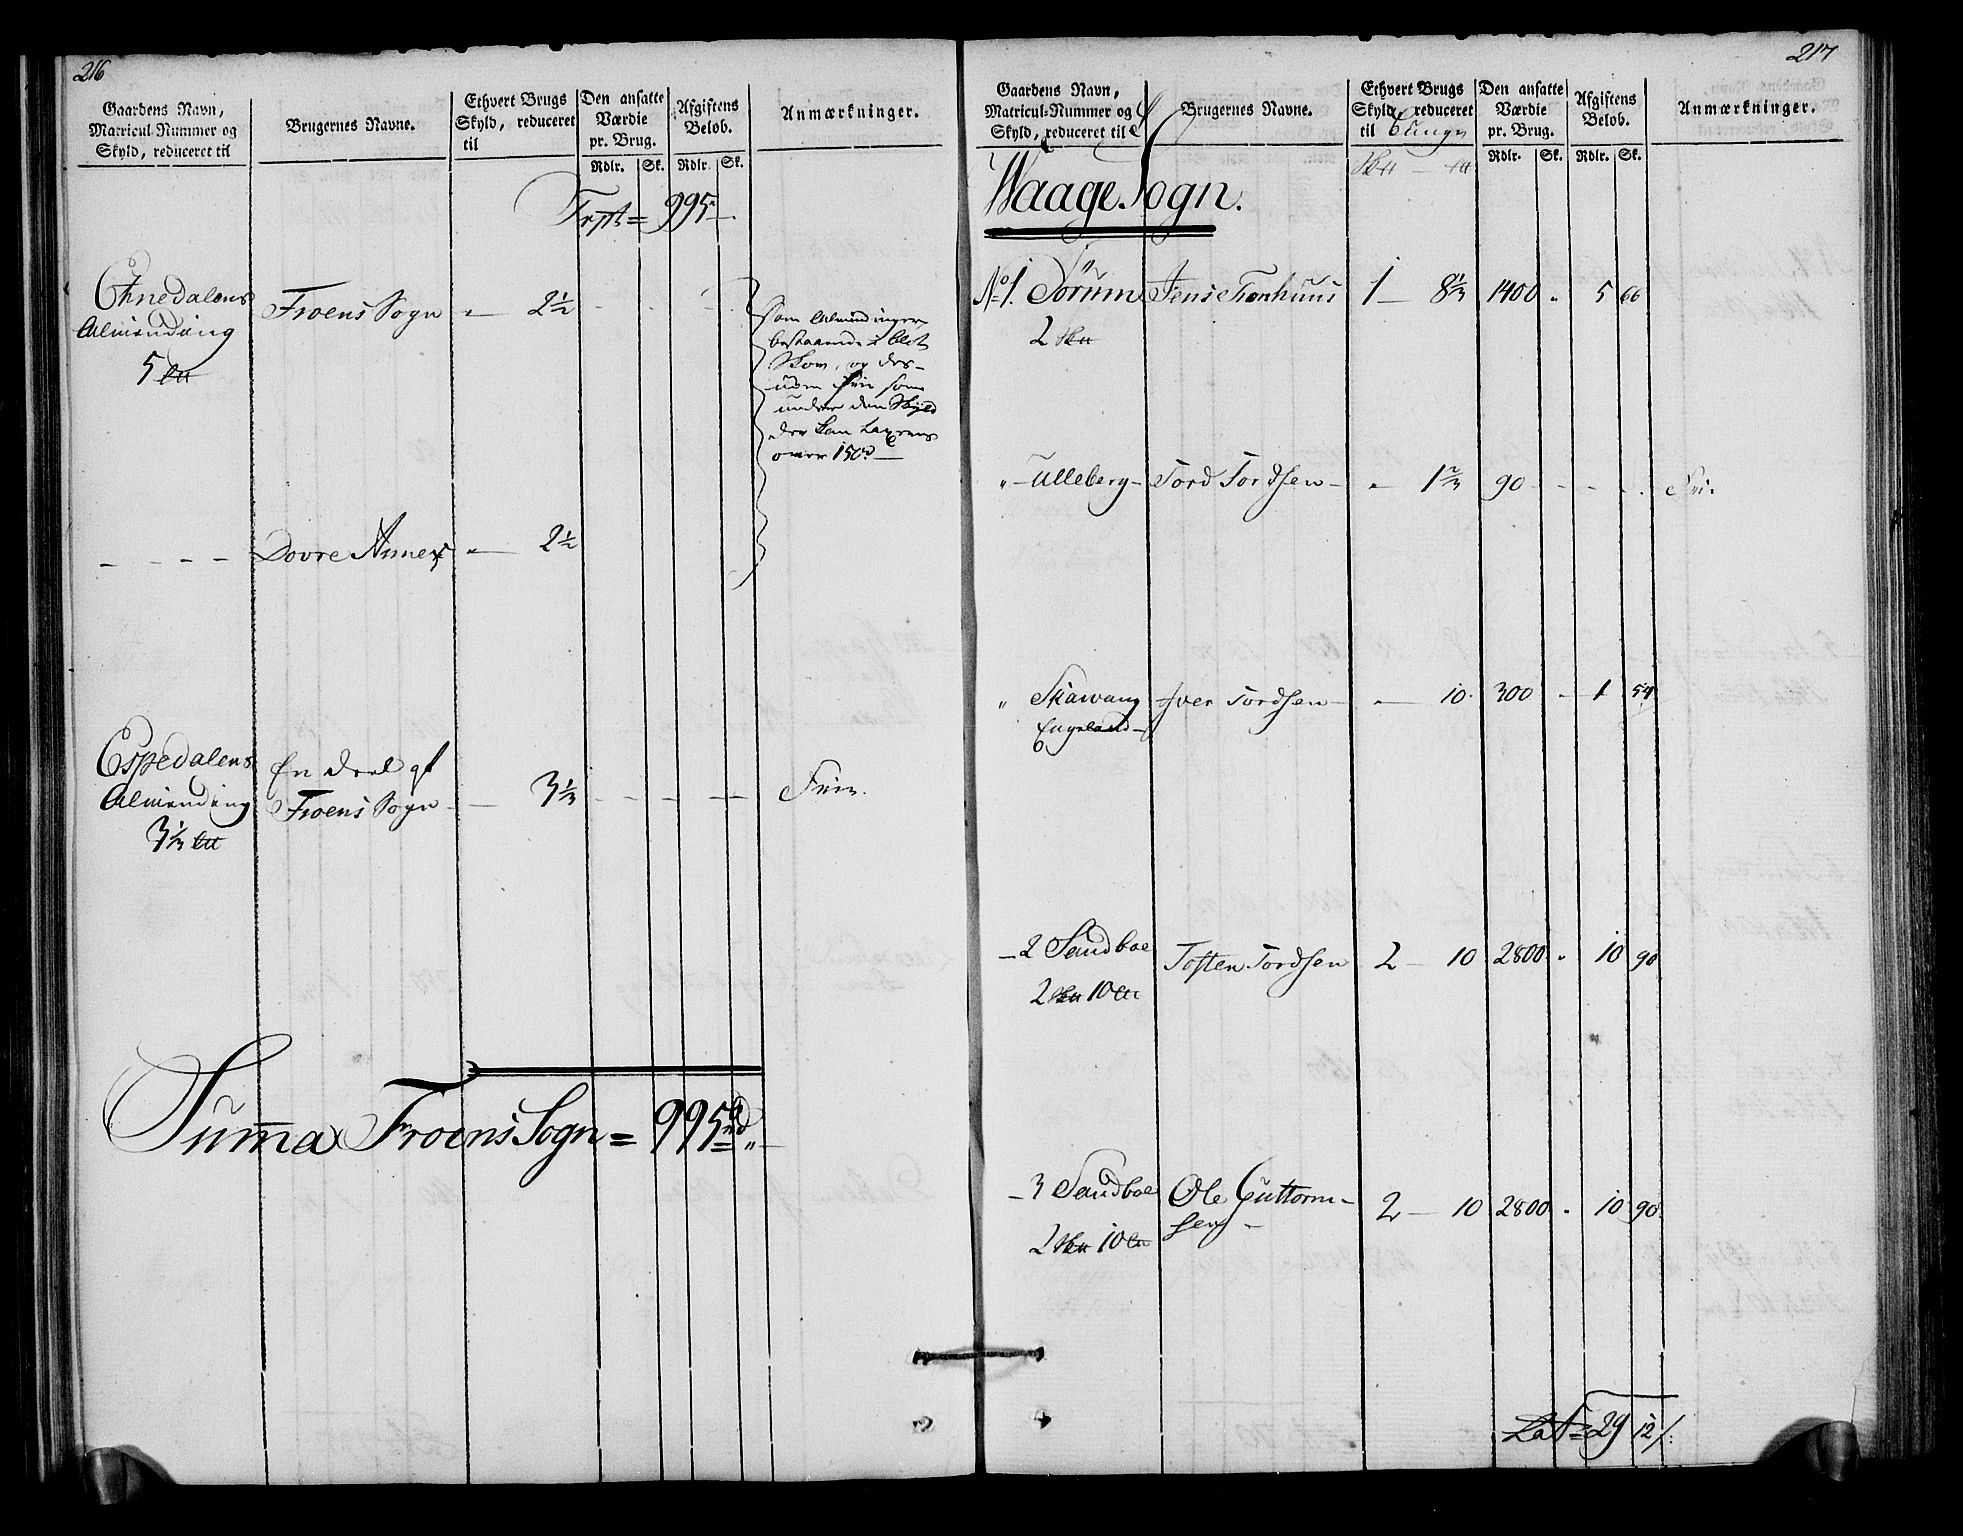 216
Gaardens Navn,
Matricul-Nummer og
Skyld, reduceret til
Brugernes Navne.
Ethvert Brugs
Skyld, reduceret
til
Den ansatte
Værdie
pr. Brug.
Rdlr. Sk.
Afgiftens
Beløb.
Rdlr. Sk.
Anmærkninger.
995
Almending
5
Froens Sogn 2½
Som Almindinger
bestaaende i blot
Skov, og des-
uden frie som
under den Skyld
der kan taxeres
over 150
Dovre Annex 2½
Espedalens
Almending
3⅓
En Deel af
Froens Sogn 3⅓
Frie.
Summa Froens Sogn = 995
217
Gaardens Navn,
Matricul-Nummer og
Skyld, reduceret til
Brugernes Navne.
Ethvert Brugs
Skyld, reduceret
til
Den ansatte
Værdie
pr. Brug.
Rdlr. Sk.
Afgiftens
Beløb.
Rdlr. Sk.
Anmærkninger.
Waage Sogn.
No 1. Sørum Jens 1 — 8⅓ 1400 " 5 66
2
" — Ulleberg — Tord Tordsen — " 1⅔ 90 — — — Fri.
" Skawang Iver Tordsen — " — 10 300 " 1 54
Engeland
— 2 Sandboe Tosten Tordsen 2 — 10 2800 " 10 90
2 10
— 3 Sandboe Ole Guttorm-
sen — 2 — 10 2800 " 10 90
2 10
Lat = 29 12